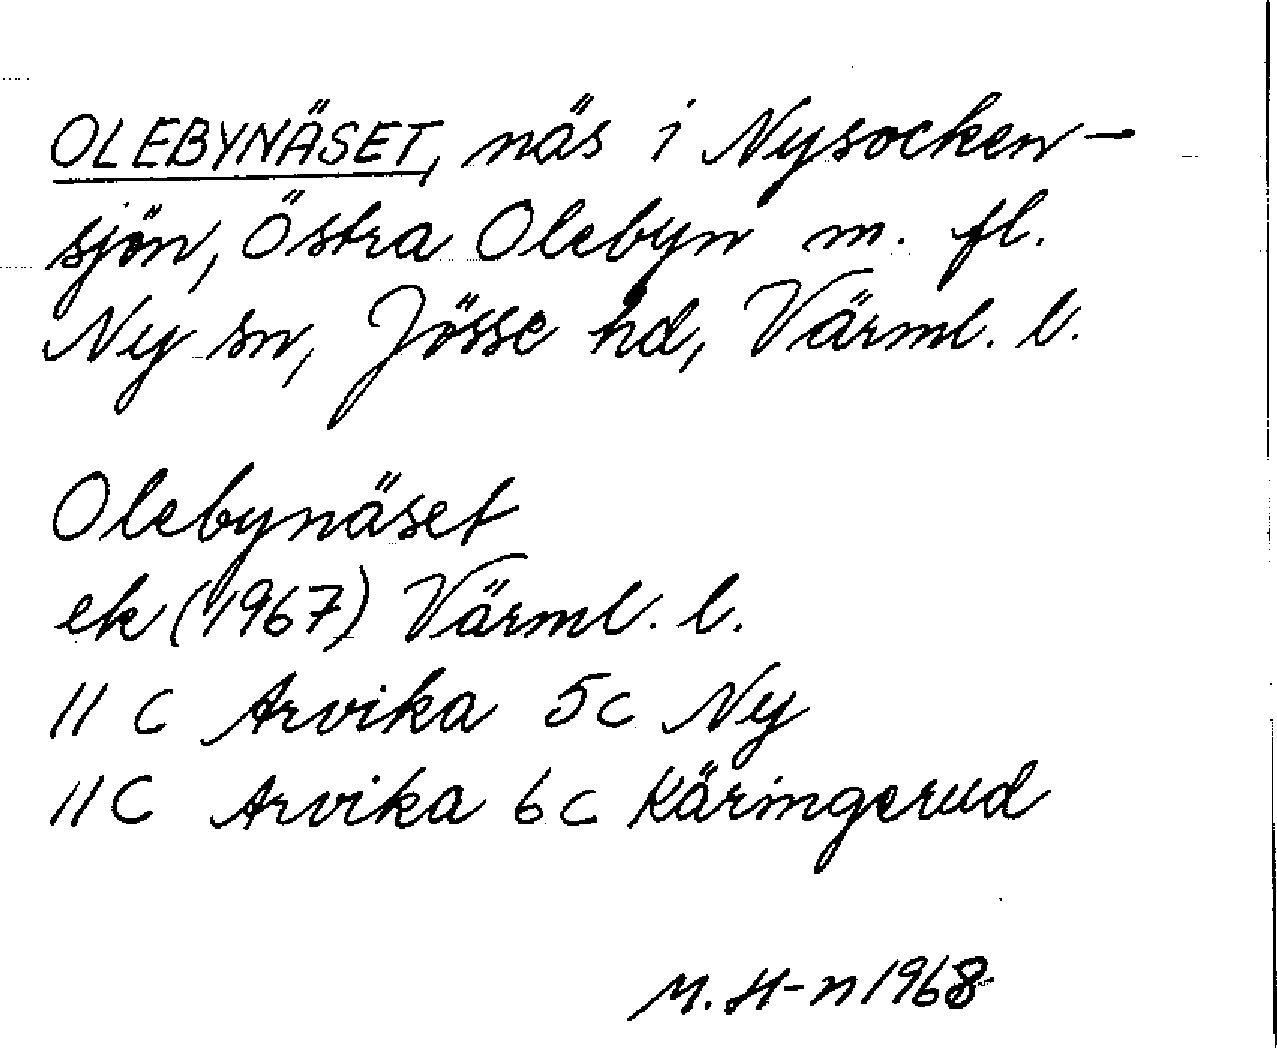 OLEBYNÄSET, näs i Nysocken-
sjön, Östra Olebyn m. fl.
Ny sn, Jösse hd, Värml. l.
Olebynäset
ek (1967) Värml. l.
11 C Arvika 5c Ny
11C Arvika 6c Käringerud
M. H-n 1968